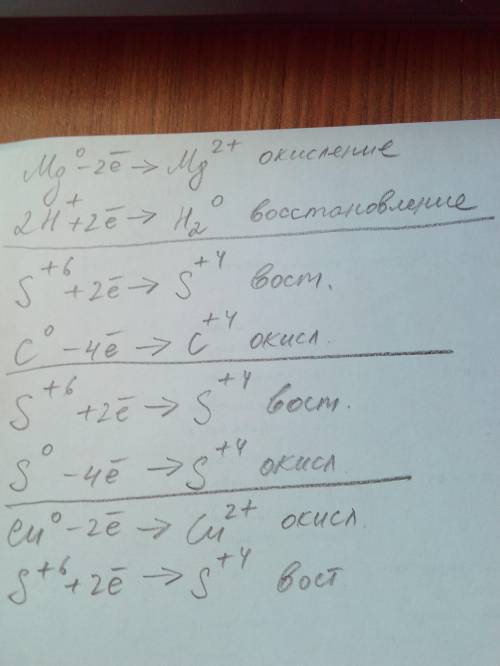 Mg⁰ - 2ē → Mg²⁺ окисление
2H⁺ + 2ē → H₂⁰ восстановление
S⁺⁶ + 2ē → S⁺⁴ вост.
C⁰ - 4ē → C⁺⁴ окисл.
S⁺⁶ + 2ē → S⁺⁴ вост.
S⁰ - 4ē → S⁺⁴ окисл
Cu⁰ - 2ē → Cu²⁺ окисл.
S⁺⁶ + 2ē → S⁺⁴ вост